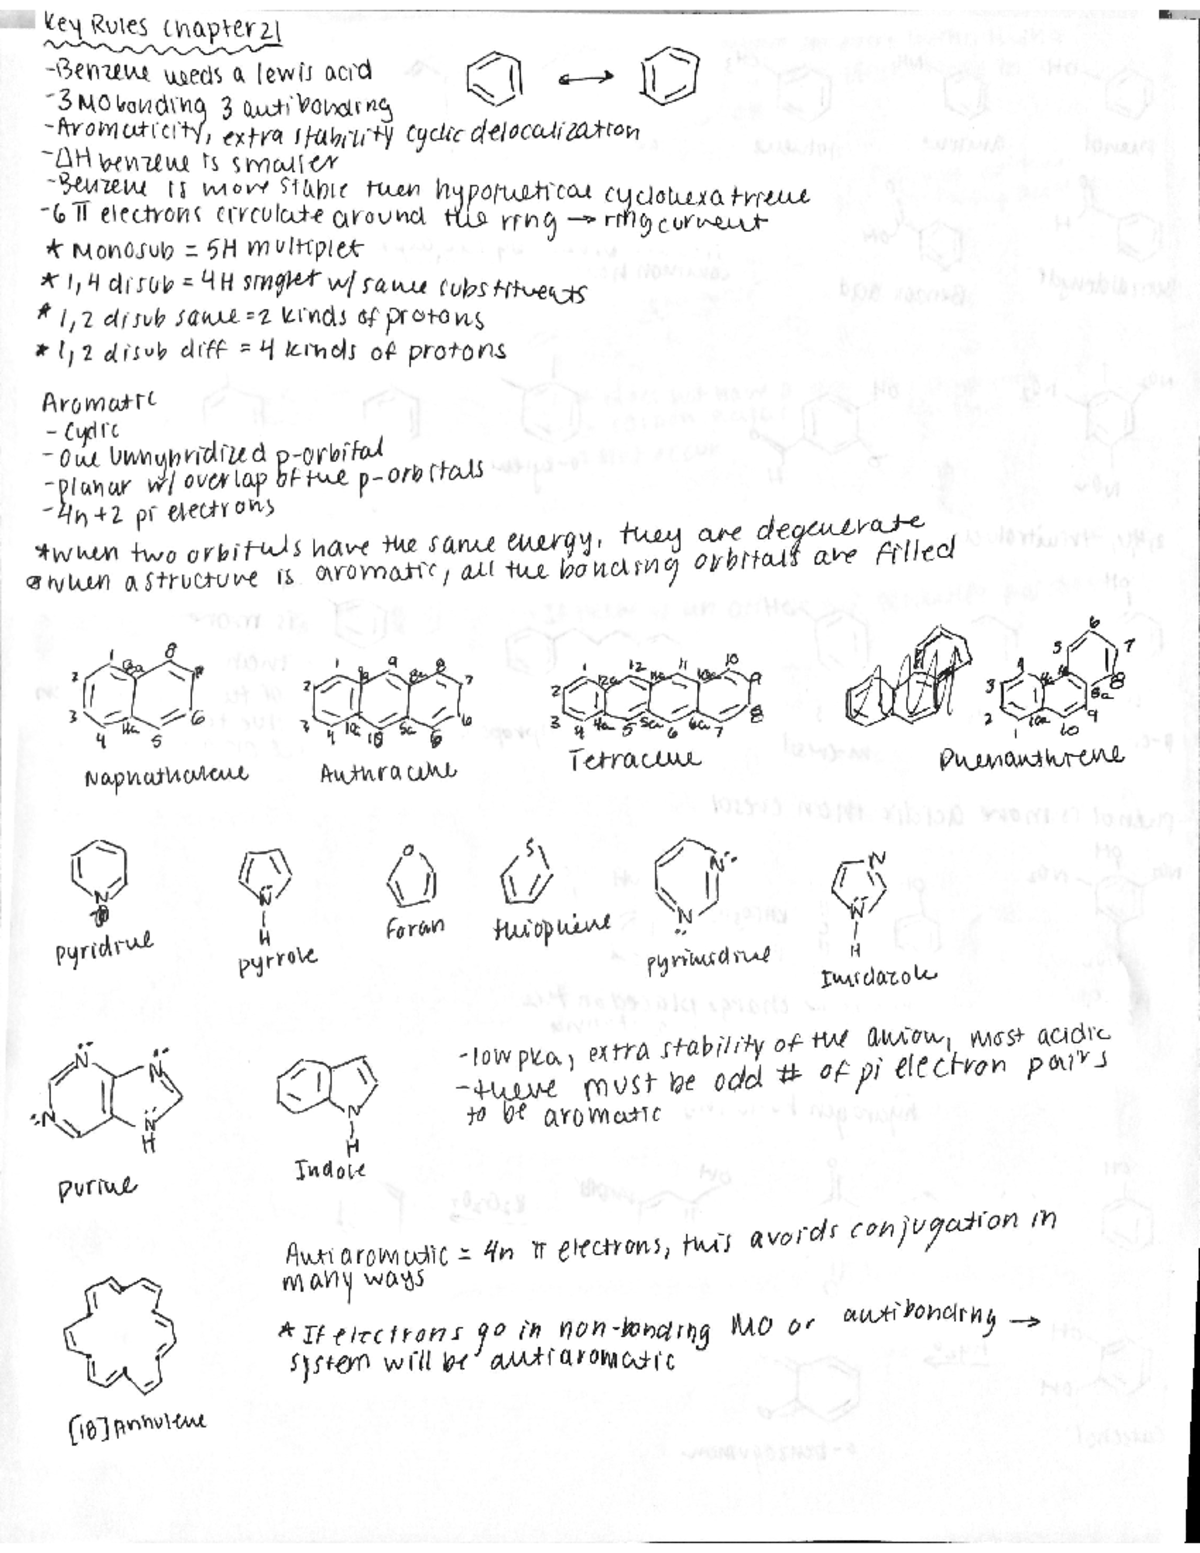 Key Rules Chapter 21
-Benzene needs a lewis acid
-3 MO bonding 3 antibonding
-Aromaticity, extra stability cyclic delocalization
-ΔH benzene is smaller
-Benzene is more stable then hypothetical cyclohexatriene
-6 π electrons circulate around the ring → ring current
* Monosub = 5H multiplet
* 1,4 disub = 4H singlet w/ same substituents
* 1,2 disub same = 2 kinds of protons
* 1,2 disub diff = 4 kinds of protons
Aromatic
- Cyclic
- One unhybridized p-orbital
-planar w/ overlap of the p-orbitals
-4n+2 pi electrons
*when two orbitals have the same energy, they are degenerate
*when a structure is aromatic, all the bonding orbitals are filled
1 8a 8
2 7
3 6
4 4a 5
Naphathalene
1 9 8a 8
2 7
3 6
4 10a 10 5a
Anthracene
1 12a 12 11a 11 10a 10
2 9
3 8
4 4a 5 5a 6 6a 7
Tetracene
6
5 7
4 4a 8
3 8a
2 10a 9
1 10
Phenanthrene
N
Pyridine
N
H
pyrrole
O
Foran
S
thiophene
N
N
pyrimidine
N
N
H
Imidazole
N N
N N
H
Purine
N
H
Indole
-low pka, extra stability of the anion, most acidic
-there must be odd # of pi electron pairs
to be aromatic
Antiaromatic = 4n π electrons, this avoids conjugation in
many ways
* If electrons go in non-bonding MO or antibonding →
system will be antiaromatic
[18] Annulene